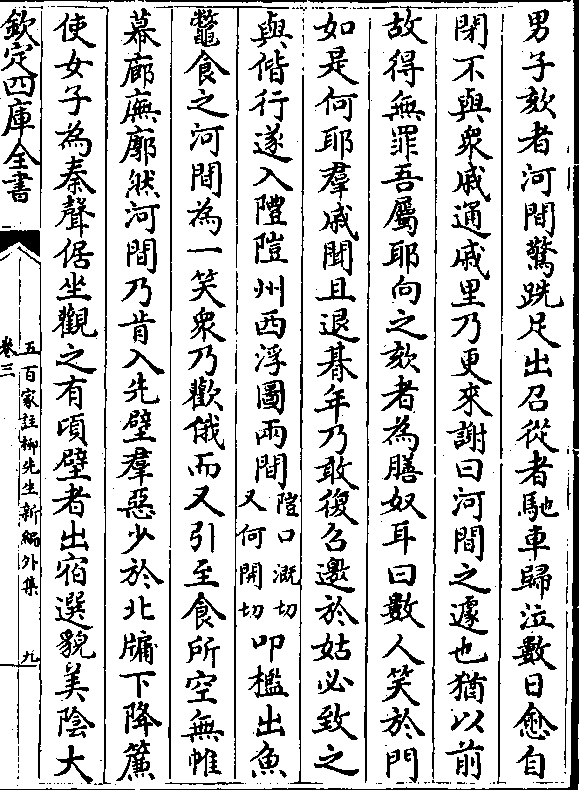 男子欬者河間驚跣足出召從者馳車歸泣數日愈自
閉不與衆戚通戚里乃更來謝曰河間之遽也猶以前
故得無罪吾屬耶向之欬者為膳奴耳曰數人笑於門
如是何耶羣戚聞且退朞年乃敢復召邀於姑必致之
與偕行遂入隑隑州西浮圖兩間隑口溉切又何開切叩檻出魚
鼈食之河間為一笑衆乃歡俄而又引至食所空無帷
幕廊廡廓然河間乃肯入先壁羣惡少於北牖下降簾
使女子為秦聲倨坐觀之有頃壁者出宿選貌美陰大
欽定四庫全書
五百家註柳先生新編外集
卷三
九